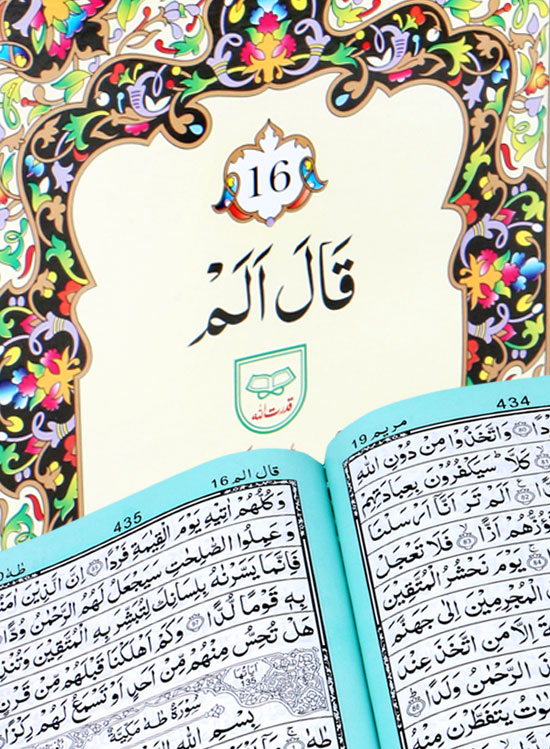 16
قَالَ اَلَمْ
قدرت الله
مريم 19 434
وَاتَّخَذُوْا مِنْ دُوْنِ اللّٰهِ
كَلَّا سَيَكْفُرُوْنَ بِعِبَادَتِهِمْ
اَلَمْ تَرَ اَنَّا اَرْسَلْنَا
اَزًّا ۝83 فَلَا تَعْجَلْ
۝84 يَوْمَ نَحْشُرُ الْمُتَّقِيْنَ
الْمُجْرِمِيْنَ اِلٰى جَهَنَّمَ
اِلَّا مَنِ اتَّخَذَ عِنْدَ
الرَّحْمٰنُ وَلَدًا
يَتَفَطَّرْنَ مِنْهُ
قال الم 16 435
وَكُلُّهُمْ اٰتِيْهِ يَوْمَ الْقِيٰمَةِ فَرْدًا ۝95 اِنَّ الَّذِيْنَ
وَعَمِلُوا الصّٰلِحٰتِ سَيَجْعَلُ لَهُمُ الرَّحْمٰنُ وُدًّا
فَاِنَّمَا يَسَّرْنٰهُ بِلِسَانِكَ لِتُبَشِّرَ بِهِ الْمُتَّقِيْنَ
بِهٖ قَوْمًا لُّدًّا ۝97 وَكَمْ اَهْلَكْنَا قَبْلَهُمْ مِّنْ قَرْنٍ
هَلْ تُحِسُّ مِنْهُمْ مِّنْ اَحَدٍ اَوْ تَسْمَعُ لَهُمْ رِكْزًا
سُوْرَةُ طٰهٰ مَكِّيَّةٌ
بِسْمِ اللّٰهِ